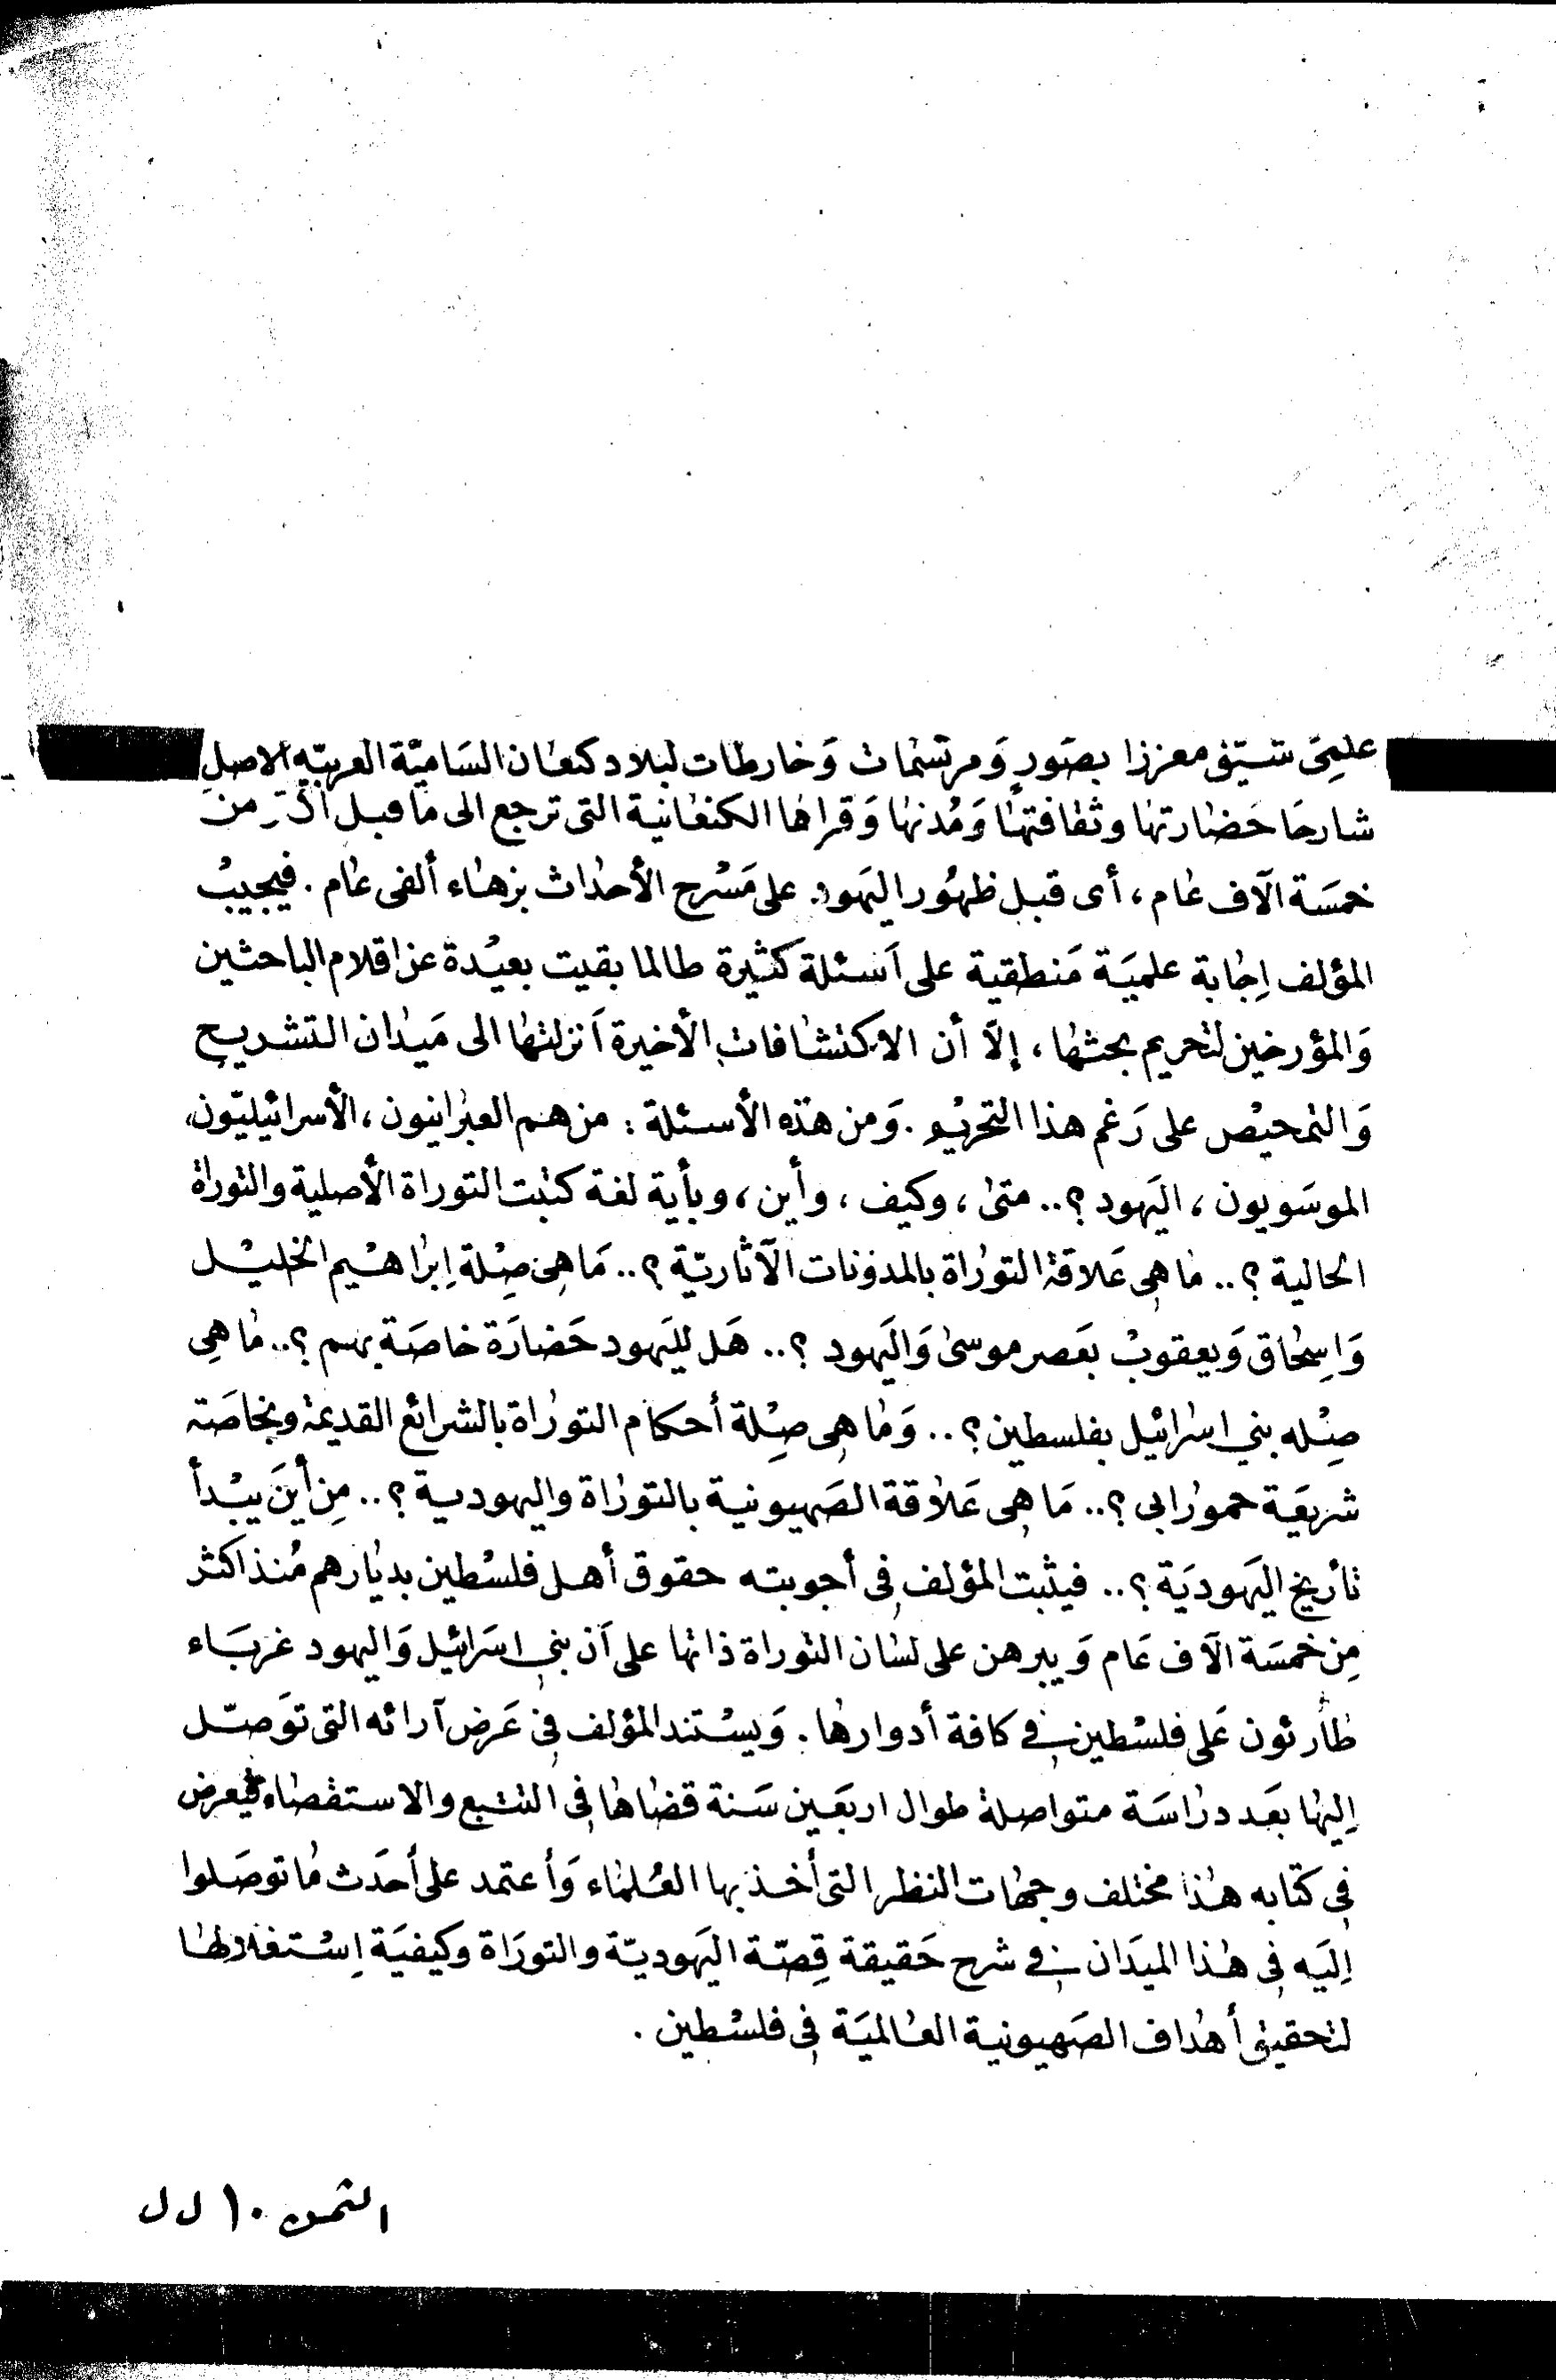 علمِيّ شيّق معززا بصَورٍ وَمرتسَمات وَخارطات لبلاد كنعان السَاميّة العربيّه الاصلِ
شارحَا حَضارتها وثقافتهَا وَمُدنها وَقراها الكنعانية التى ترجع الى مَا قبل اكثر من
خمسَة آلآف عام ، أى قبل ظهُور اليَهود. على مَسْرح الأحداث بزهاء ألفى عام . فيجيبُ
المؤلف اِجابة علميَة مَنطقية على اَسئلة كثيرة طالما بقيت بعيْدة عن اقلام الباحثين
وَالمؤرخين لتحريم بحثها ، إلاّ أن الاكتشافات الأخيرة اَنزلتها الى مَيدان التشريح
وَالتمحيْص على رَغم هذا التحريْم . وَمن هَذه الأسئلة : من هم العبرانيون ، الأسرائيليّون،
الموسَويون ، اليَهود ؟.. متى ، وكيف ، وأين ، وبأية لغة كتبت التوراة الأصلية والتوراة
الحالية ؟.. ما هى عَلاقة التوراة بالمدونات الآثاريّة ؟.. مَا هى صِلة اِبراهيْم الخليْل
وَاسِحاق وَيعقوبْ بعَصر موسىٰ وَاليَهود ؟.. هَل لليَهود حَضارَة خاصَة بهم ؟.. ما هِى
صِلْه بني اسرائيل بفلسطين ؟.. وَما هى صِلة أحكام التوراة بالشرائع القديمة وبخاصَته
شريعَة حمورابى ؟.. مَا هى عَلاقة الصَهيونية بالتوراة واليهودية ؟.. مِن أينَ يبْدأ
تأريخ اليَهوديَة ؟.. فيثبت المؤلف فى أجوبته حقوق أهل فلسْطين بديارهم مُنذ اكثر
مِن خمسَة آلآف عَام وَيبرهن على لسَان التوراة ذاتها على اَن بني اسَرائيل وَاليهود غربَاء
طارئون عَلى فلسْطين في كافة أدوارها . وَيسْتند المؤلف في عَرض آرائه التى توَصّل
اِليها بعَد دراسَة متواصلة طوال اربعَين سَنة قضاها في التتبع والاستقصاء، فيعرض
في كتابه هٰذا مختلف وجهات النظر التى أخذ بها العُلماء وَأعتمد على أحَدث ما توصَلوا
اِليَه في هذا الميدَان في شرح حَقيقة قِصّة اليَهوديّة والتورَاة وكيفيَة اِسْتغلالها
لتحقيق أهداف الصَهيونية العالميَة فى فلسْطين .
الثمن ١٠ ل ل